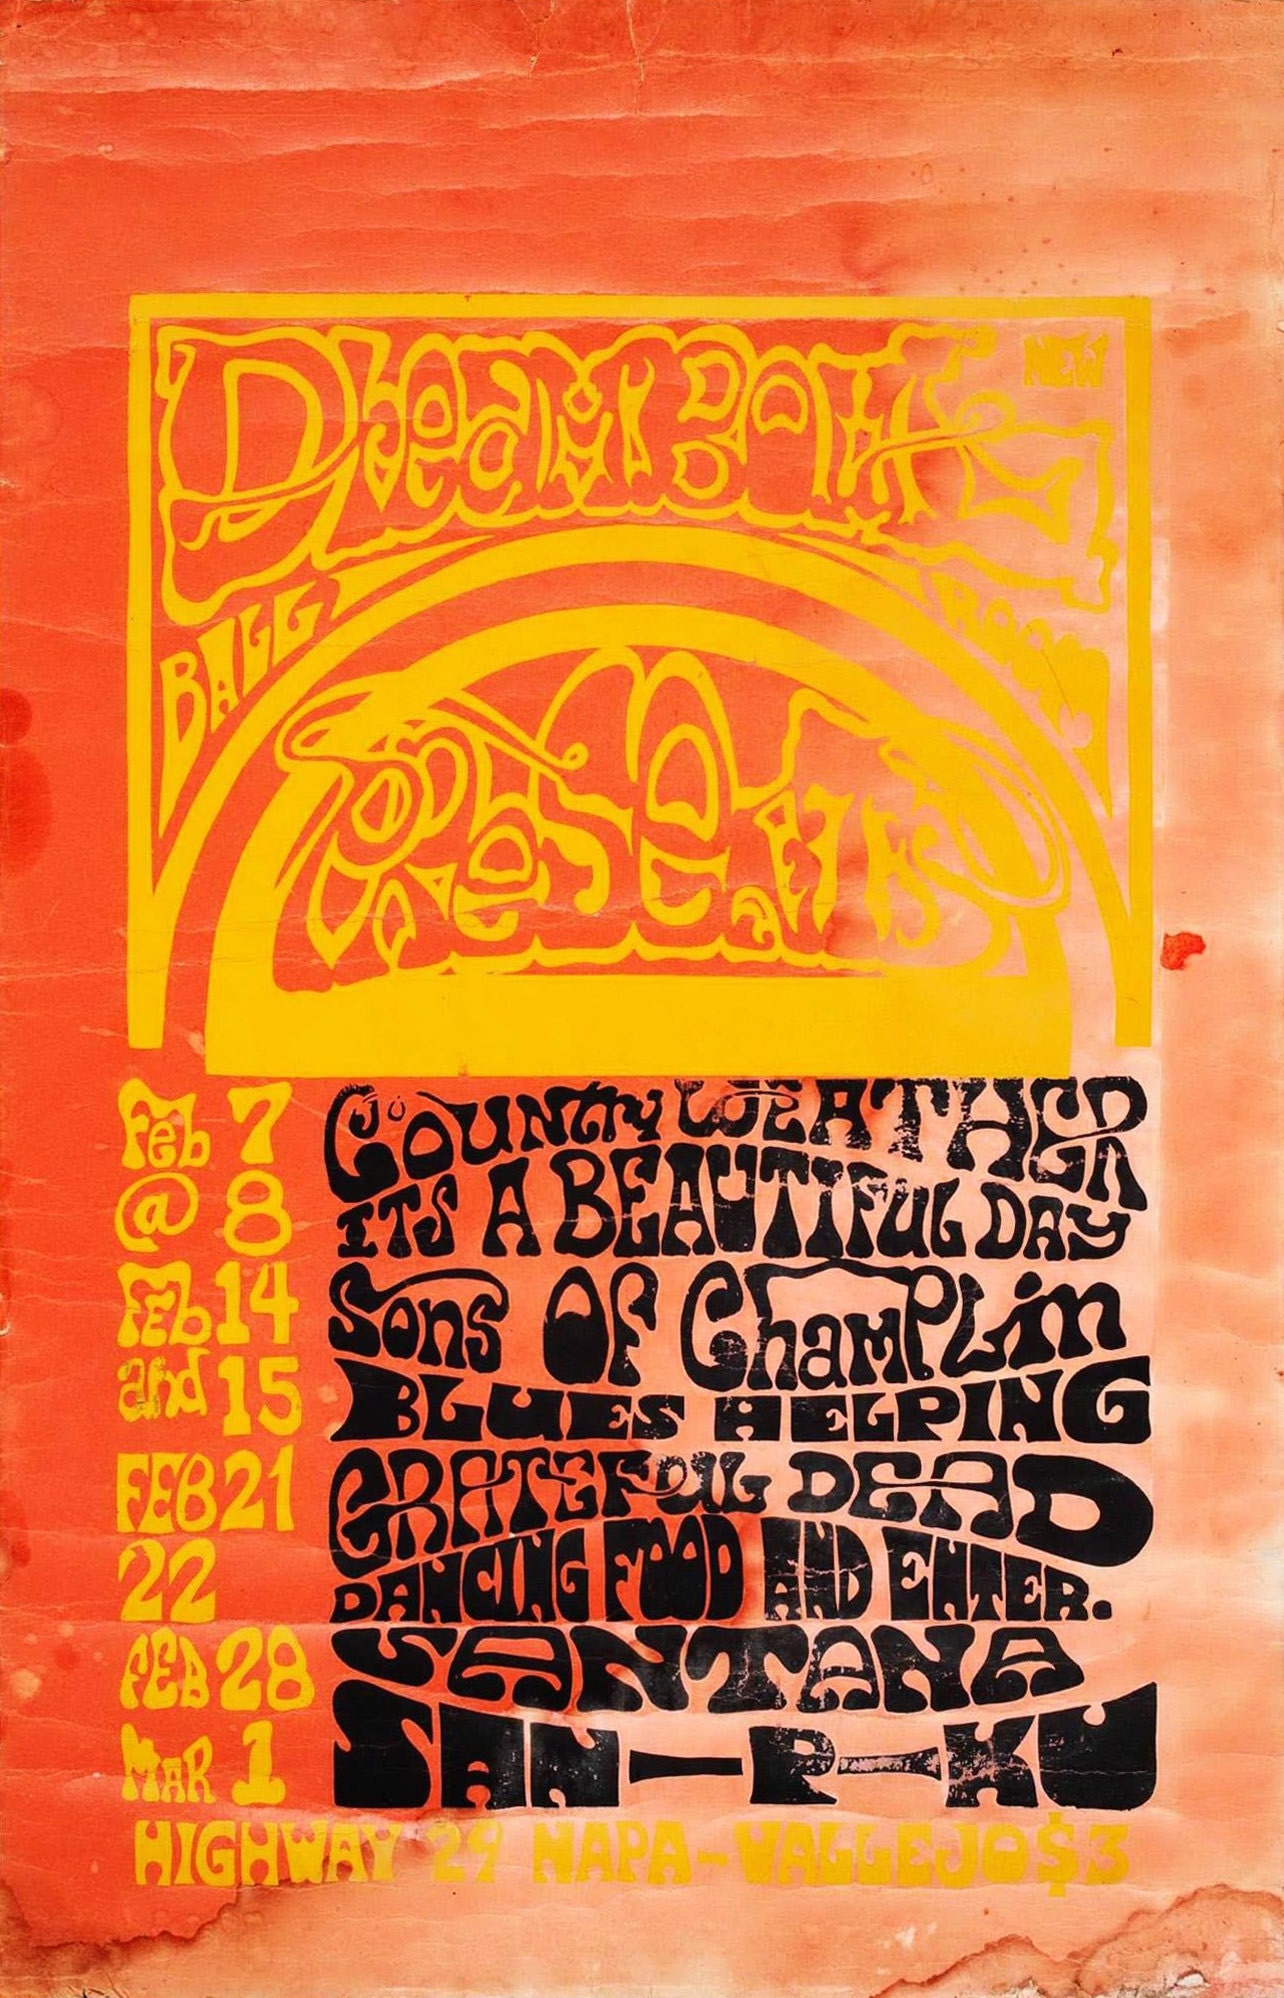 Dream Bowl
NEW
BALL
ROOM
Presents
Feb 7 COUNTRY WEATHER
@ 8 ITS A BEAUTIFUL DAY
Feb 14 Sons OF ChamPLin
and 15 BLUES HELPING
FEB 21 GRATEFUL DEAD
22 DANCING FOOD AND ENTER.
FEB 28 SANTANA
MAR 1 SAN-P-KU
HIGHWAY 29 NAPA-VALLEJO $3